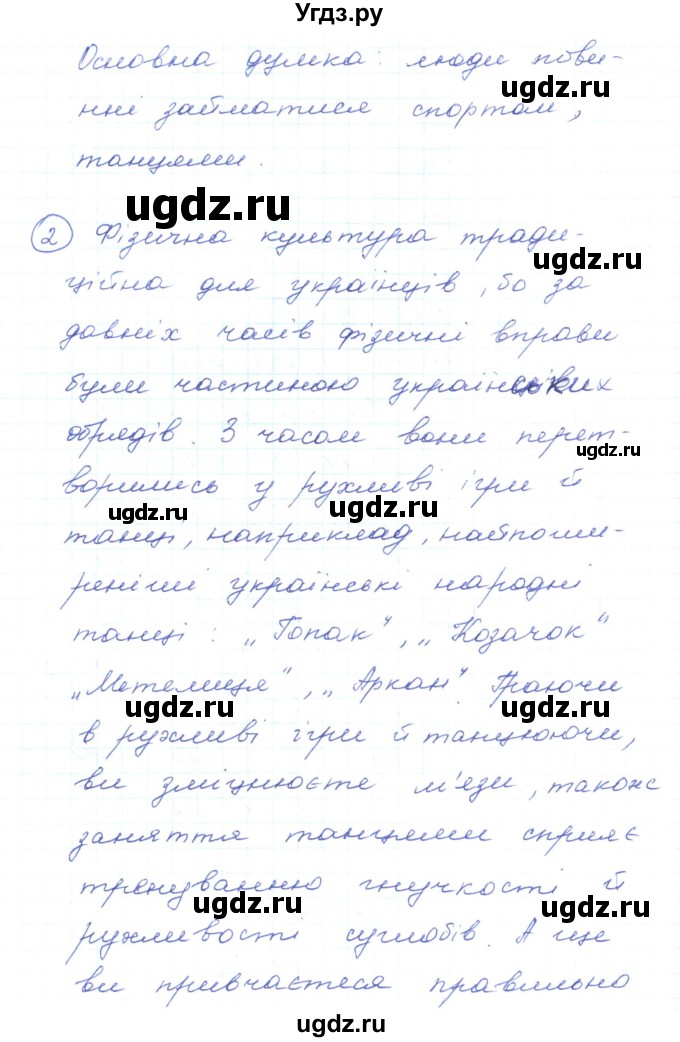 Угдз.ру
Основна думка: люди пови-
ugdz.ru
нні займатися спортом,
ugdz.ru
танцями.
ugdz.ru
2 Фізична культура тради-
ugdz.ru
ційна для українців, бо за
давніх часів фізичні вправи
ugdz.ru
були частиною українських
обрядів. З часом вони перет-
ugdz.ru
ворились у рухливі ігри й
ugdz.ru ugdz.ru
танці, наприклад, найпоши-
реніші українські народні
ugdz.ru
танці: „Гопак", „Козачок"
„Метелиця", „Аркан". Граючи
ugdz.ru ugdz.ru
в рухливі ігри й танцюючи,
ви зміцнюєте м'язи, також
заняття танцями сприяє
тренуванню гнучкості й
ugdz.ru ugdz.ru
рухливості суглобів. А ще
ви привчаєтеся правильно
ugdz.ru